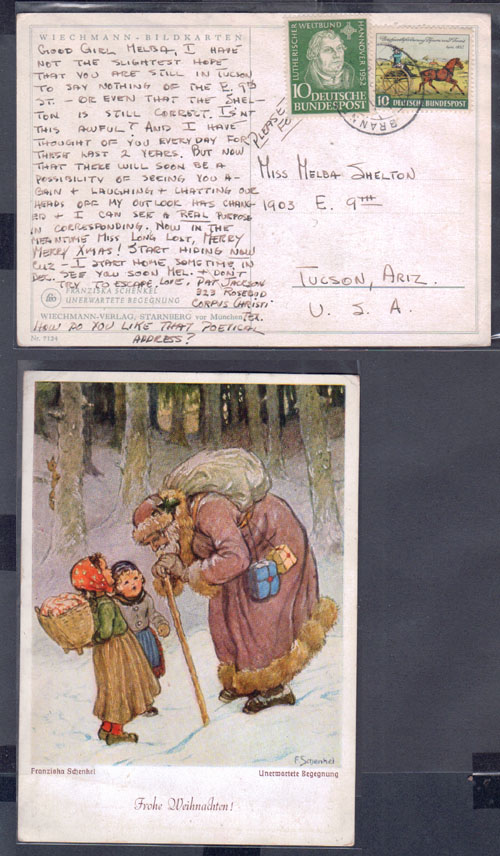 WIECHMANN-BILDKARTEN
GOOD GIRL MELBA, I HAVE
NOT THE SLIGHTEST HOPE
THAT YOU ARE STILL IN TUCSON
TO SAY NOTHING OF THE E. 9TH
ST. - OR EVEN THAT THE SHEL-
TON IS STILL CORRECT. ISN'T
THIS AWFUL? AND I HAVE
THOUGHT OF YOU EVERYDAY FOR
THESE LAST 2 YEARS. BUT NOW
THAT THERE WILL SOON BE A
POSSIBILITY OF SEEING YOU A-
GAIN + LAUGHING + CHATTING OUR
HEADS OFF MY OUTLOOK HAS CHANG-
ED + I CAN SEE A REAL PURPOSE
IN CORRESPONDING. NOW IN THE
MEANTIME MISS LONG LOST, MERRY
MERRY XMAS! START HIDING NOW
CUZ - I START HOME SOMETIME IN
DEC. SEE YOU SOON MEL. + DON'T
TRY TO ESCAPE. LOVE, PAT JACKSON
323 ROSEBUD
CORPUS CHRISTI
TEX.
HOW DO YOU LIKE THAT POETICAL
ADDRESS?
FRANZISKA SCHENKEL
UNERWARTETE BEGEGNUNG
WIECHMANN-VERLAG, STARNBERG vor München
Nr. 7134
LUTHERISCHER WELTBUND
HANNOVER 1952
10 DEUTSCHE
BUNDESPOST
10 DEUTSCHE BUNDESPOST
PLEASE
MISS MELBA SHELTON
1903 E. 9TH
TUCSON, ARIZ.
U. S. A.
F. Schenkel
Franziska Schenkel
Unerwartete Begegnung
Frohe Weihnachten!